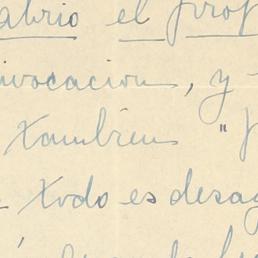 abrio el prof
ivocacion, y
también "
todo es desag